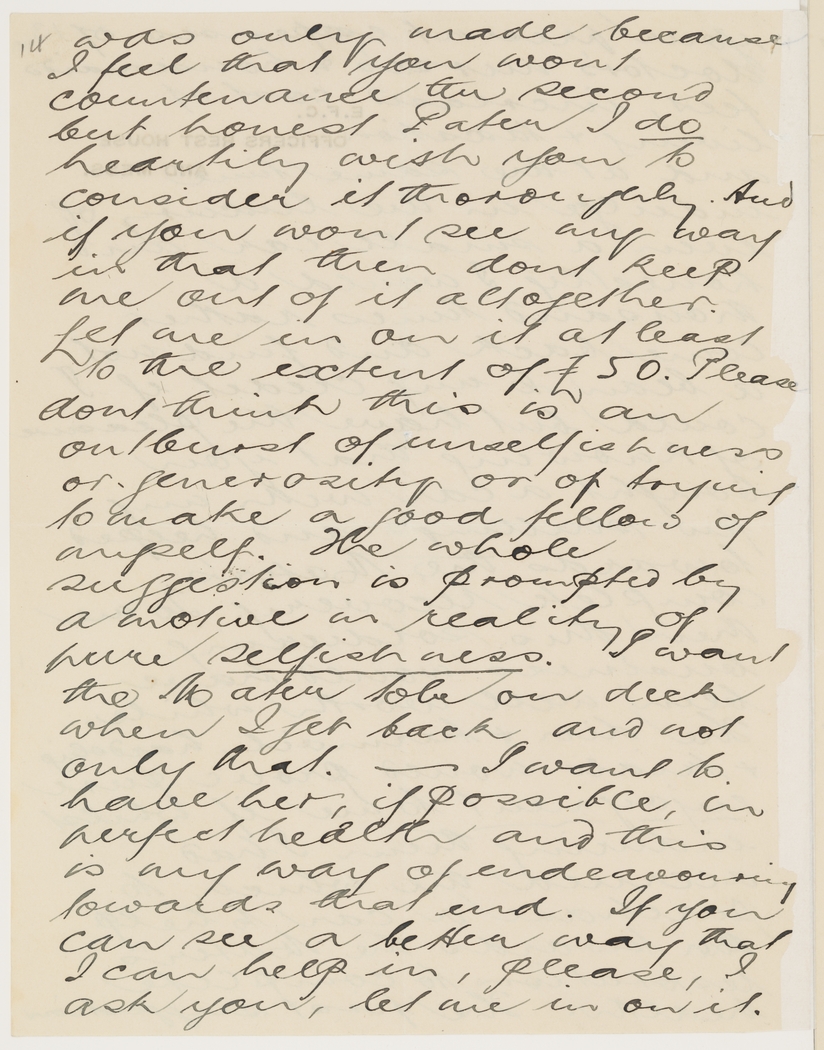 14 was only made because
I feel that you wont
countenance the second
but honest Pater I do
heartily wish you to
consider it thoroughly. And
if you wont see my way
in that then dont keep
me out of it altogether.
Let me in on it at least
to the extent of £50. Please
dont think this is an
outburst of unselfishness
or generosity or of trying
to make a good fellow of
myself. The whole
suggestion is prompted by
a motive in reality of
pure selfishness. I want
the Mater to be on deck
when I get back and not
only that. — I want to
have her, if possible, in
perfect health and this
is my way of endeavouring
towards that end. If you
can see a better way that
I can help in, please, I
ask you, let me in on it.